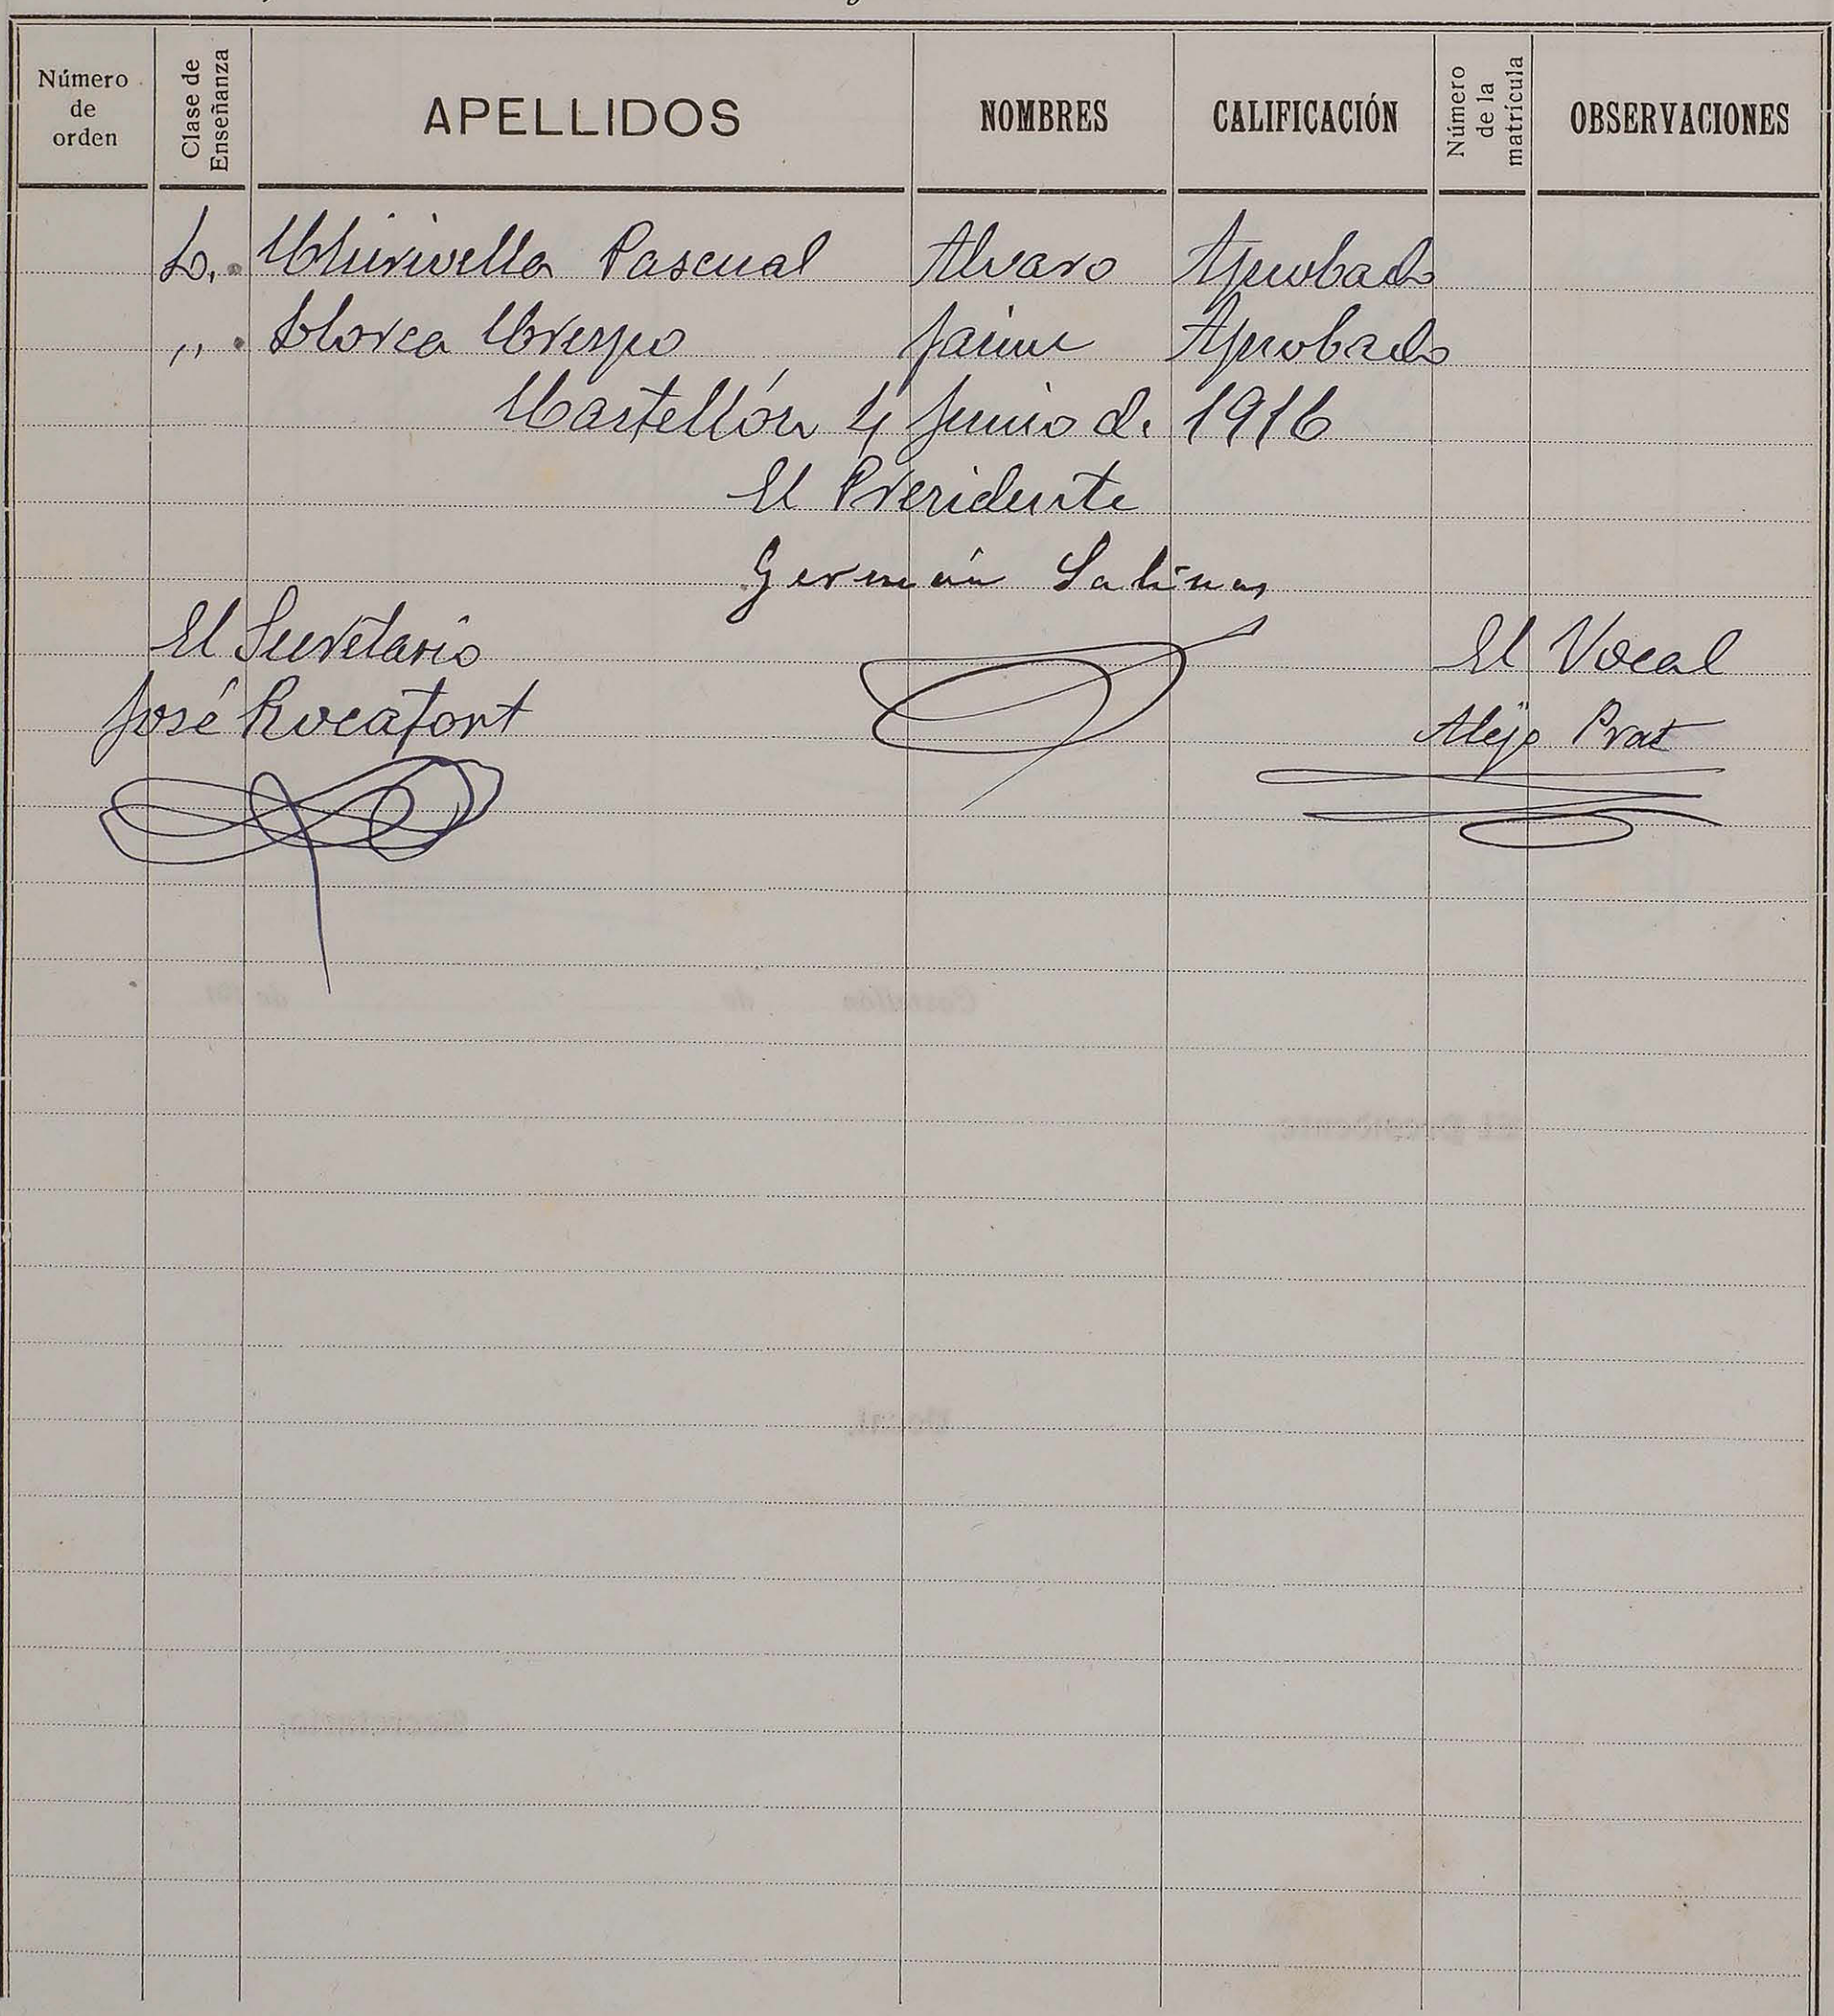 Número de orden
Clase de Enseñanza
APELLIDOS
NOMBRES
CALIFICACIÓN
Número de la matrícula
OBSERVACIONES
L. Chirivella Pascual Alvaro Aprobado
,, Llorca Crespo Jaime Aprobado
Castellón 4 Junio de 1916
El Presidente
Germán Salinas
El Secretario
El Vocal
José Rocafort
Alejo Prat